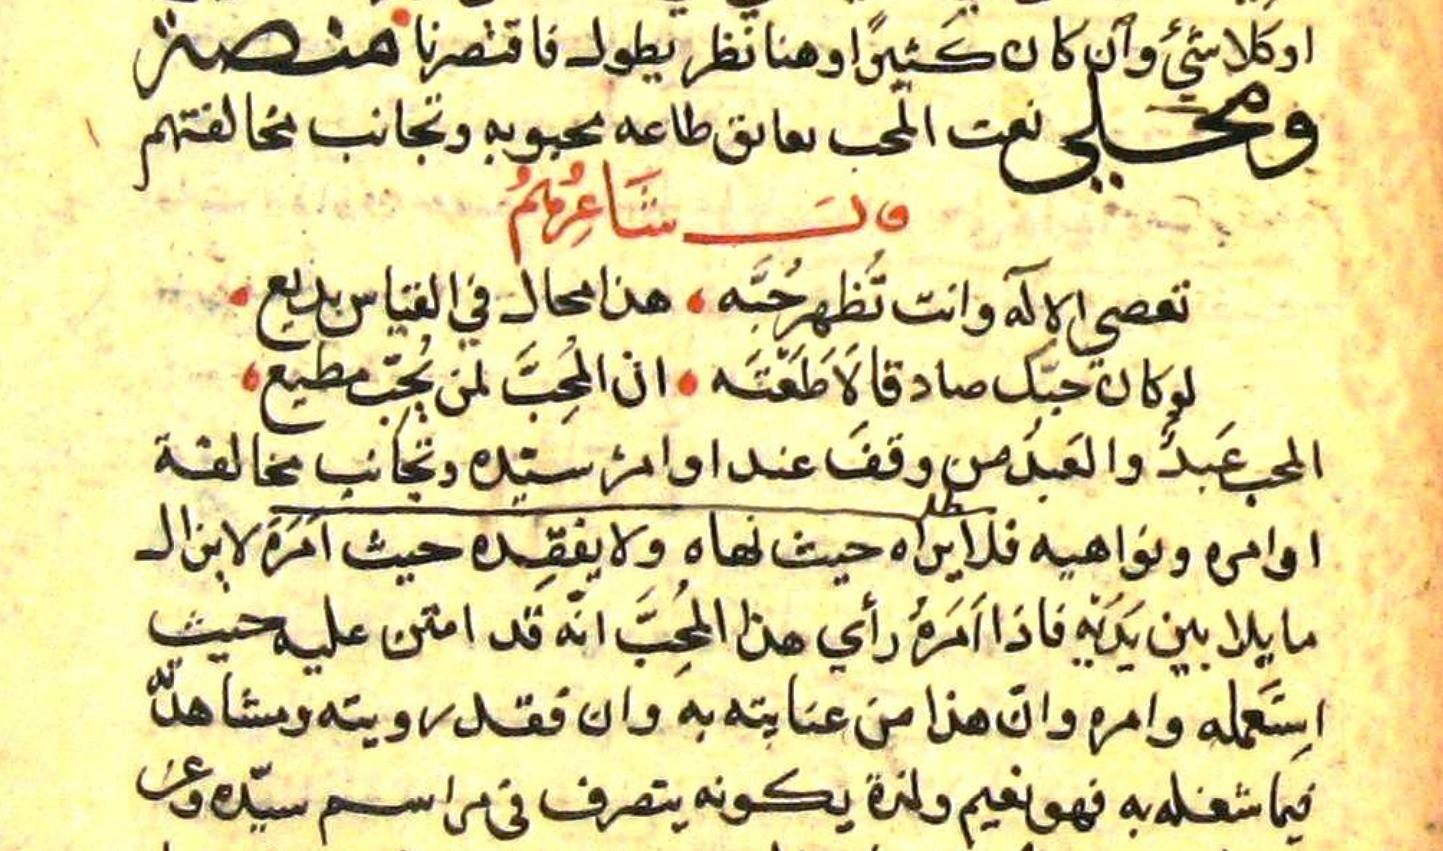 او كلا شئ وان كان كثيرًا وهنا نظر يطول فاقتصرنا منصة
ومجلي نعت المحب بعانق طاعه محبوبه وتجانب مخالفتهم
قال شاعرهم
تعصي الإله وانت تُظهر حُبَّه ، هذا محال في القياس بديع ،
لو كان حبك صادقا لَاَطَعْتَه ، ان المُحِبَّ لمن يُحِبّ مطيع ،
المحب عَبدٌ والعَبدُ من وقفَ عند اوامر سيّده وتجانب مخالفة
اوامره ونواهيه فلا يراه حيث نهاه ولا يفقِده حيث اَمَرَهُ لا يزال
ماثلا بين يَدَيْهِ فاذا اَمَرَهُ رأي هذا المُحِبَّ انّه قد امتن عليه حيث
استَعمله وامره وانّ هذا من عنايته به وان فقد رويته ومشاهدتّه
فيما شغله به فهو نعيم ولذة يكونه يتصرف في مراسم سيّده وعن